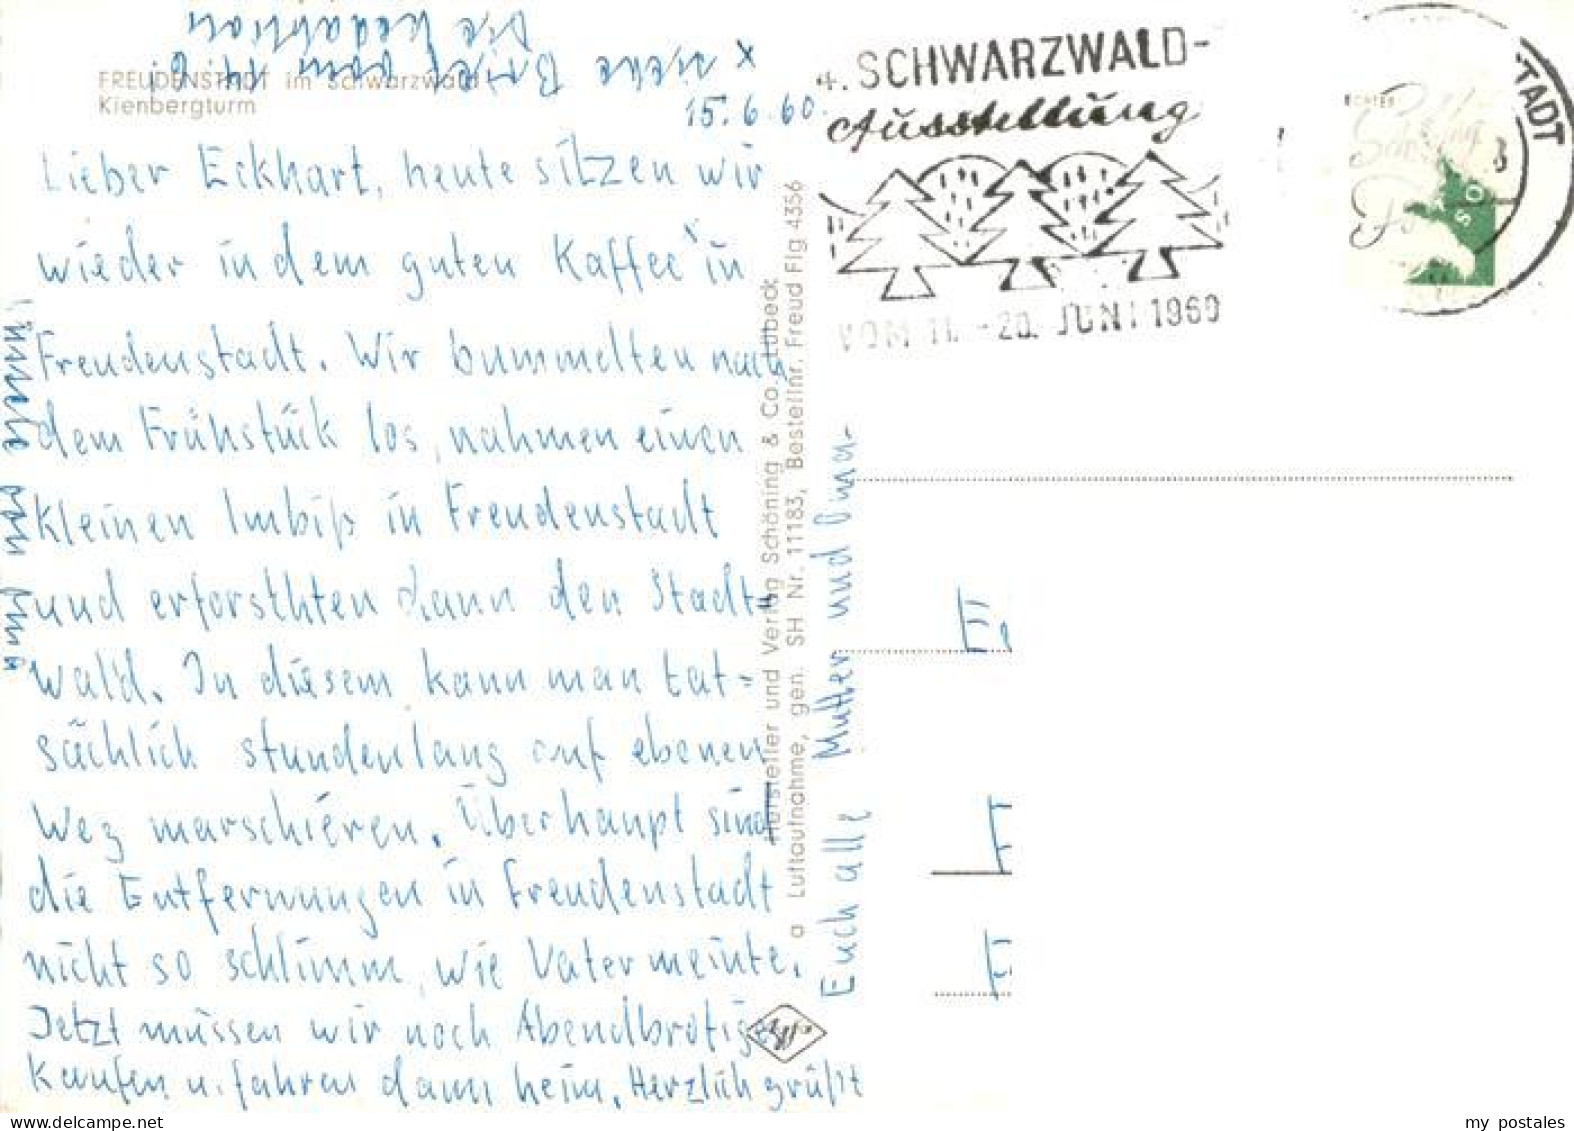 Die Redaktion
x siehe Brief vom 14.6.!
FREUDENSTADT im Schwarzwald
Kienbergturm
15.6.60.
Lieber Eckhart, heute sitzen wir
wieder in dem guten Kaffee in
Freudenstadt. Wir bummelten nach
dem Frühstück los, nahmen einen
kleinen Imbiß in Freudenstadt
und erforschten dann den Stadt=
wald. In diesem kann man tat=
sächlich stundenlang auf ebenen
Weg marschieren. Überhaupt sind
die Entfernungen in Freudenstadt
nicht so schlimm, wie Vater meinte.
Jetzt müssen wir noch Abendbrotige
kaufen u. fahren dann heim. Herzlich grüßt
Euch alle Mutter und Oma.
Hersteller und Verlag Schöning & Co., Lübeck
a Luftaufnahme, gen. SH Nr. 11183, Bestellnr. Freud Flg 4356
4. SCHWARZWALD-
Ausstellung
VOM 11.-20. JUNI 1960
TADT
my postales